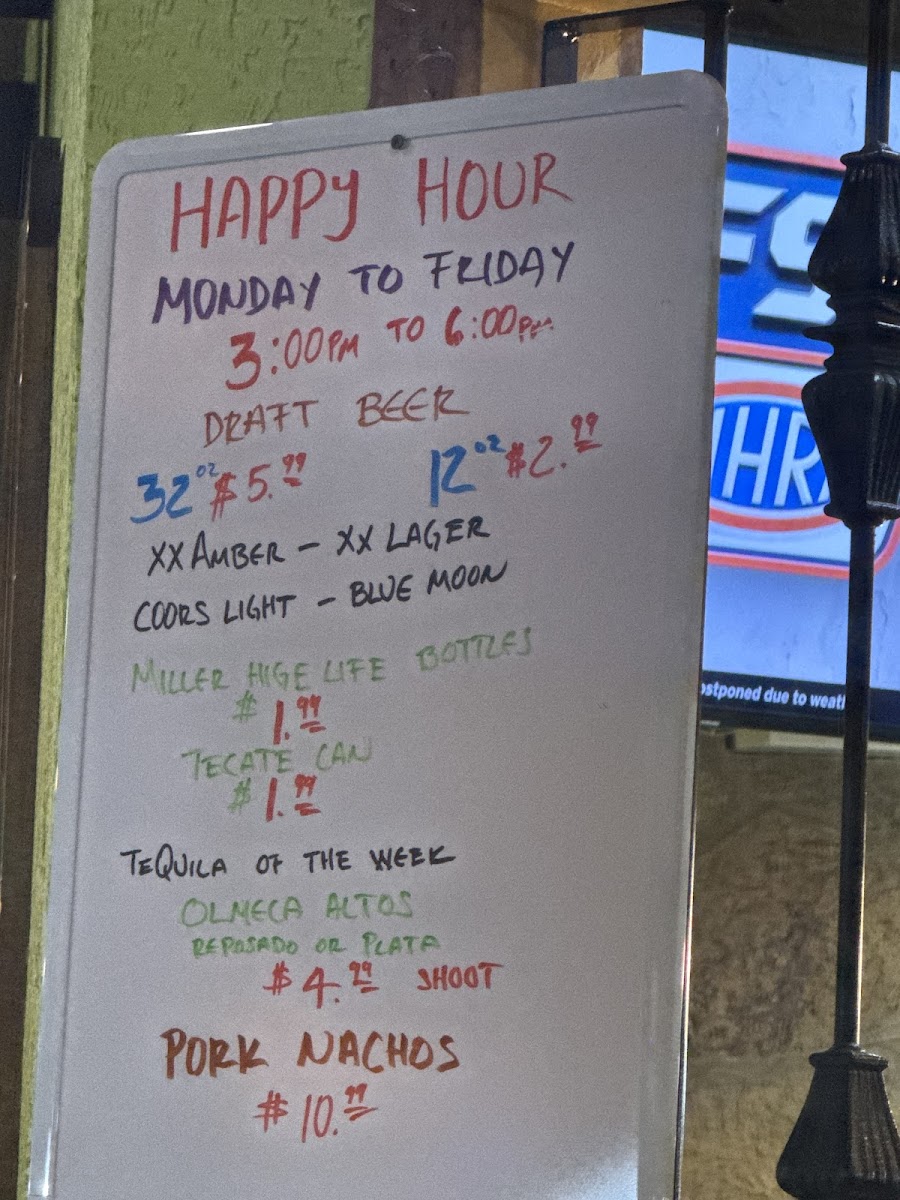 HAPPY HOUR
MONDAY TO FRIDAY
3:00PM TO 6:00PM
DRAFT BEER
32oz $5.99 12oz $2.99
XX AMBER - XX LAGER
COORS LIGHT - BLUE MOON
MILLER HIGE LIFE BOTTLES
$1.99
TECATE CAN
$1.99
TEQUILA OF THE WEEK
OLMECA ALTOS
REPOSADO OR PLATA
$4.99 SHOOT
PORK NACHOS
$10.99
FS
NHRA
ostponed due to weat